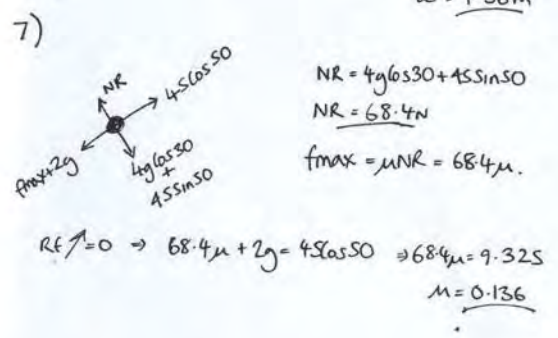 7)
NR
45Cos50
fmax+2g
4gCos30
+
45Sin50
NR = 4gCos30+45Sin50
NR = 68.4N
fmax = μNR = 68.4μ.
RF↗=0 ⇒ 68.4μ + 2g = 45Cos50 ⇒ 68.4μ = 9.325
μ = 0.136